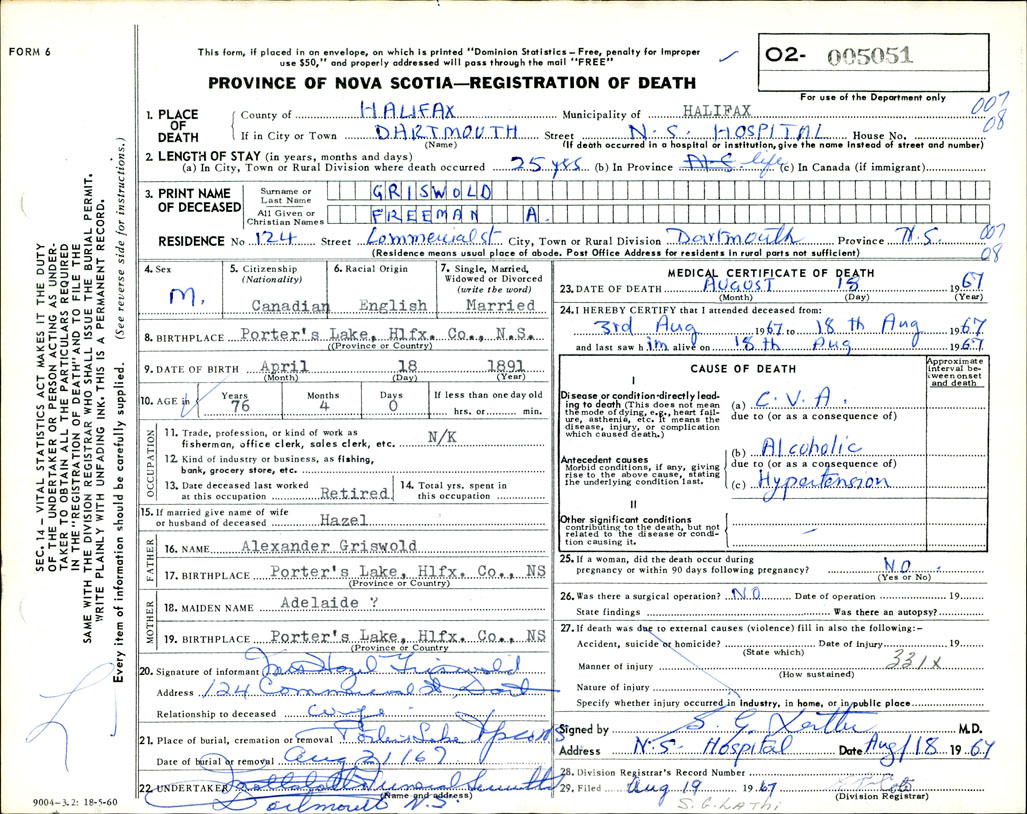 FORM 6
This form, if placed in an envelope, on which is printed "Dominion Statistics – Free, penalty for improper
use $50," and properly addressed will pass through the mail "FREE"
O2- 005051
PROVINCE OF NOVA SCOTIA—REGISTRATION OF DEATH
For use of the Department only
007
08
1. PLACE OF DEATH
County of HALIFAX Municipality of HALIFAX
If in City or Town DARTMOUTH Street N.S. HOSPITAL House No.
(Name) (If death occurred in a hospital or institution, give the name instead of street and number)
2. LENGTH OF STAY (in years, months and days)
(a) In City, Town or Rural Division where death occurred 25 yrs (b) In Province life (c) In Canada (if immigrant)
3. PRINT NAME OF DECEASED
Surname or Last Name GRISWOLD
All Given or Christian Names FREEMAN A.
RESIDENCE No 124 Street Commercial st City, Town or Rural Division Dartmouth Province N.S.
007
08
(Residence means usual place of abode. Post Office Address for residents in rural parts not sufficient)
4. Sex M.
5. Citizenship (Nationality) Canadian
6. Racial Origin English
7. Single, Married, Widowed or Divorced (write the word) Married
8. BIRTHPLACE Porter's Lake, Hlfx. Co., N.S.
(Province or Country)
9. DATE OF BIRTH April 18 1891
(Month) (Day) (Year)
10. AGE in Years 76 Months 4 Days 0 If less than one day old hrs. or min.
OCCUPATION
11. Trade, profession, or kind of work as
fisherman, office clerk, sales clerk, etc. N/K
12. Kind of industry or business, as fishing,
bank, grocery store, etc.
13. Date deceased last worked at this occupation Retired
14. Total yrs. spent in this occupation
15. If married give name of wife
or husband of deceased Hazel
FATHER
16. NAME Alexander Griswold
17. BIRTHPLACE Porter's Lake, Hlfx. Co., NS
(Province or Country)
MOTHER
18. MAIDEN NAME Adelaide ?
19. BIRTHPLACE Porter's Lake, Hlfx. Co., NS
(Province or Country)
20. Signature of informant Mrs Hazel Griswold
Address 124 Commercial St Dart
Relationship to deceased wife
21. Place of burial, cremation or removal Porters Lake
Date of burial or removal Aug 21/67
22. UNDERTAKER Funeral
(Name and address)
Dartmouth N.S.
9004-3.2: 18-5-60
MEDICAL CERTIFICATE OF DEATH
23. DATE OF DEATH AUGUST 18 1967
(Month) (Day) (Year)
24. I HEREBY CERTIFY that I attended deceased from:
3rd Aug 1967 to 18 th Aug 1967
and last saw him alive on 18 th Aug 1967
CAUSE OF DEATH
Approximate interval between onset and death
I
Disease or condition directly leading to death (This does not mean
the mode of dying, e.g., heart failure, asthenia, etc. It means the
disease, injury, or complication
which caused death.)
(a) C.V.A.
due to (or as a consequence of)
Antecedent causes
Morbid conditions, if any, giving
rise to the above cause, stating
the underlying condition last.
(b) Alcoholic
due to (or as a consequence of)
(c) Hypertension
II
Other significant conditions
contributing to the death, but not
related to the disease or condition causing it.
25. If a woman, did the death occur during
pregnancy or within 90 days following pregnancy? NO.
(Yes or No)
26. Was there a surgical operation? NO Date of operation 19
State findings Was there an autopsy?
27. If death was due to external causes (violence) fill in also the following:–
Accident, suicide or homicide? Date of injury 19
(State which)
331X
Manner of injury
(How sustained)
Nature of injury
Specify whether injury occurred in industry, in home, or in public place
Signed by S. G. M.D.
Address N.S. Hospital Date Aug/18 1967
28. Division Registrar's Record Number
29. Filed Aug 19 1967
(Division Registrar)
S. G. LATHI
SEC. 14 – VITAL STATISTICS ACT MAKES IT THE DUTY
OF THE UNDERTAKER OR PERSON ACTING AS UNDERTAKER TO OBTAIN ALL THE PARTICULARS REQUIRED
IN THE "REGISTRATION OF DEATH" AND TO FILE THE
SAME WITH THE DIVISION REGISTRAR WHO SHALL ISSUE THE BURIAL PERMIT.
WRITE PLAINLY WITH UNFADING INK. THIS IS A PERMANENT RECORD.
Every item of information should be carefully supplied. (See reverse side for instructions.)